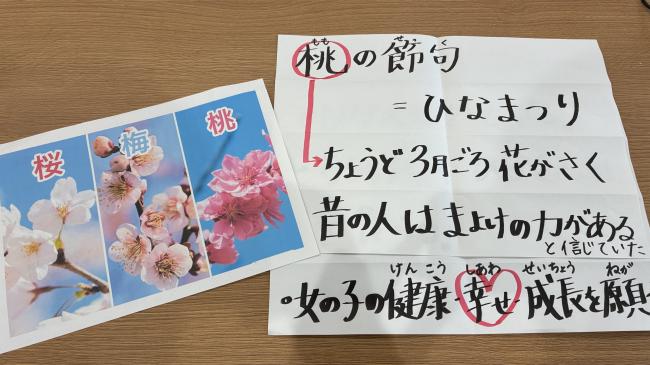 桜 梅 桃
もも せっく
桃の節句
= ひなまつり
ちょうど3月ごろ 花がさく
昔の人は まよけの力がある
と信じていた
けんこう しあわ せいちょう ねが
・女の子の健康 幸せ 成長を願